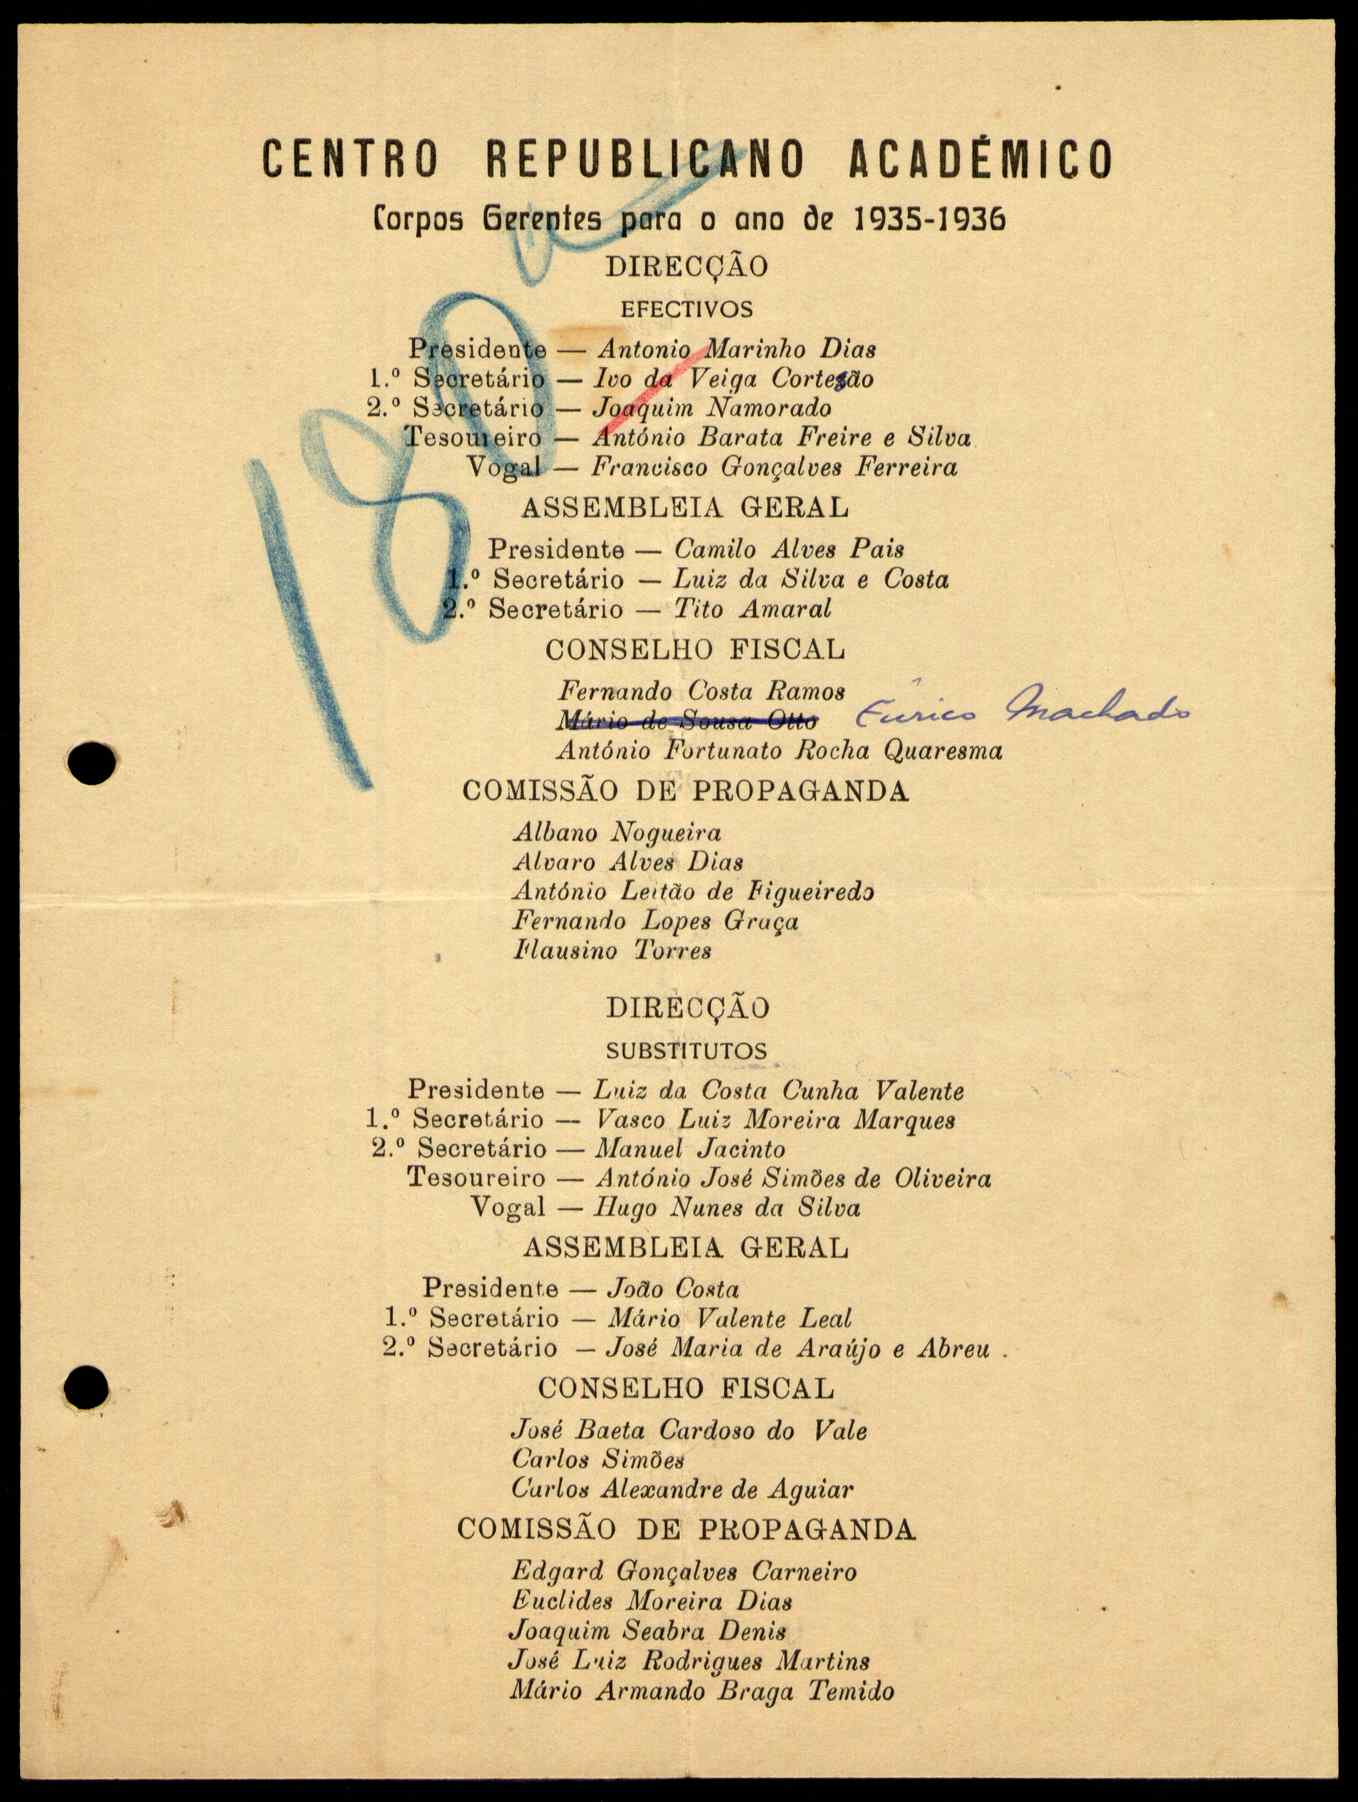 CENTRO REPUBLICANO ACADÉMICO
Corpos Gerentes para o ano de 1935-1936
DIRECÇÃO
EFECTIVOS
Presidente — Antonio Marinho Dias
1.º Secretário — Ivo da Veiga Cortesão
2.º Secretário — Joaquim Namorado
Tesoureiro — António Barata Freire e Silva
Vogal — Francisco Gonçalves Ferreira
ASSEMBLEIA GERAL
Presidente — Camilo Alves Pais
1.º Secretário — Luiz da Silva e Costa
2.º Secretário — Tito Amaral
CONSELHO FISCAL
Fernando Costa Ramos
Mário de Sousa Otto Eurico Machado
António Fortunato Rocha Quaresma
COMISSÃO DE PROPAGANDA
Albano Nogueira
Alvaro Alves Dias
António Leitão de Figueiredo
Fernando Lopes Graça
Flausino Torres
DIRECÇÃO
SUBSTITUTOS
Presidente — Luiz da Costa Cunha Valente
1.º Secretário — Vasco Luiz Moreira Marques
2.º Secretário — Manuel Jacinto
Tesoureiro — António José Simões de Oliveira
Vogal — Hugo Nunes da Silva
ASSEMBLEIA GERAL
Presidente — João Costa
1.º Secretário — Mário Valente Leal
2.º Secretário — José Maria de Araújo e Abreu .
CONSELHO FISCAL
José Baeta Cardoso do Vale
Carlos Simões
Carlos Alexandre de Aguiar
COMISSÃO DE PROPAGANDA
Edgard Gonçalves Carneiro
Euclides Moreira Dias
Joaquim Seabra Denis
José Luiz Rodrigues Martins
Mário Armando Braga Temido